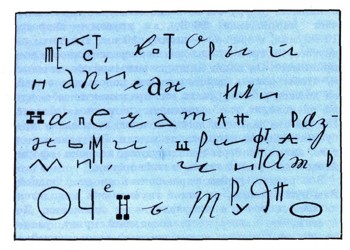 текст, который
написан или
напечатан раз-
ными шрифта-
ми, читать
очень трудно